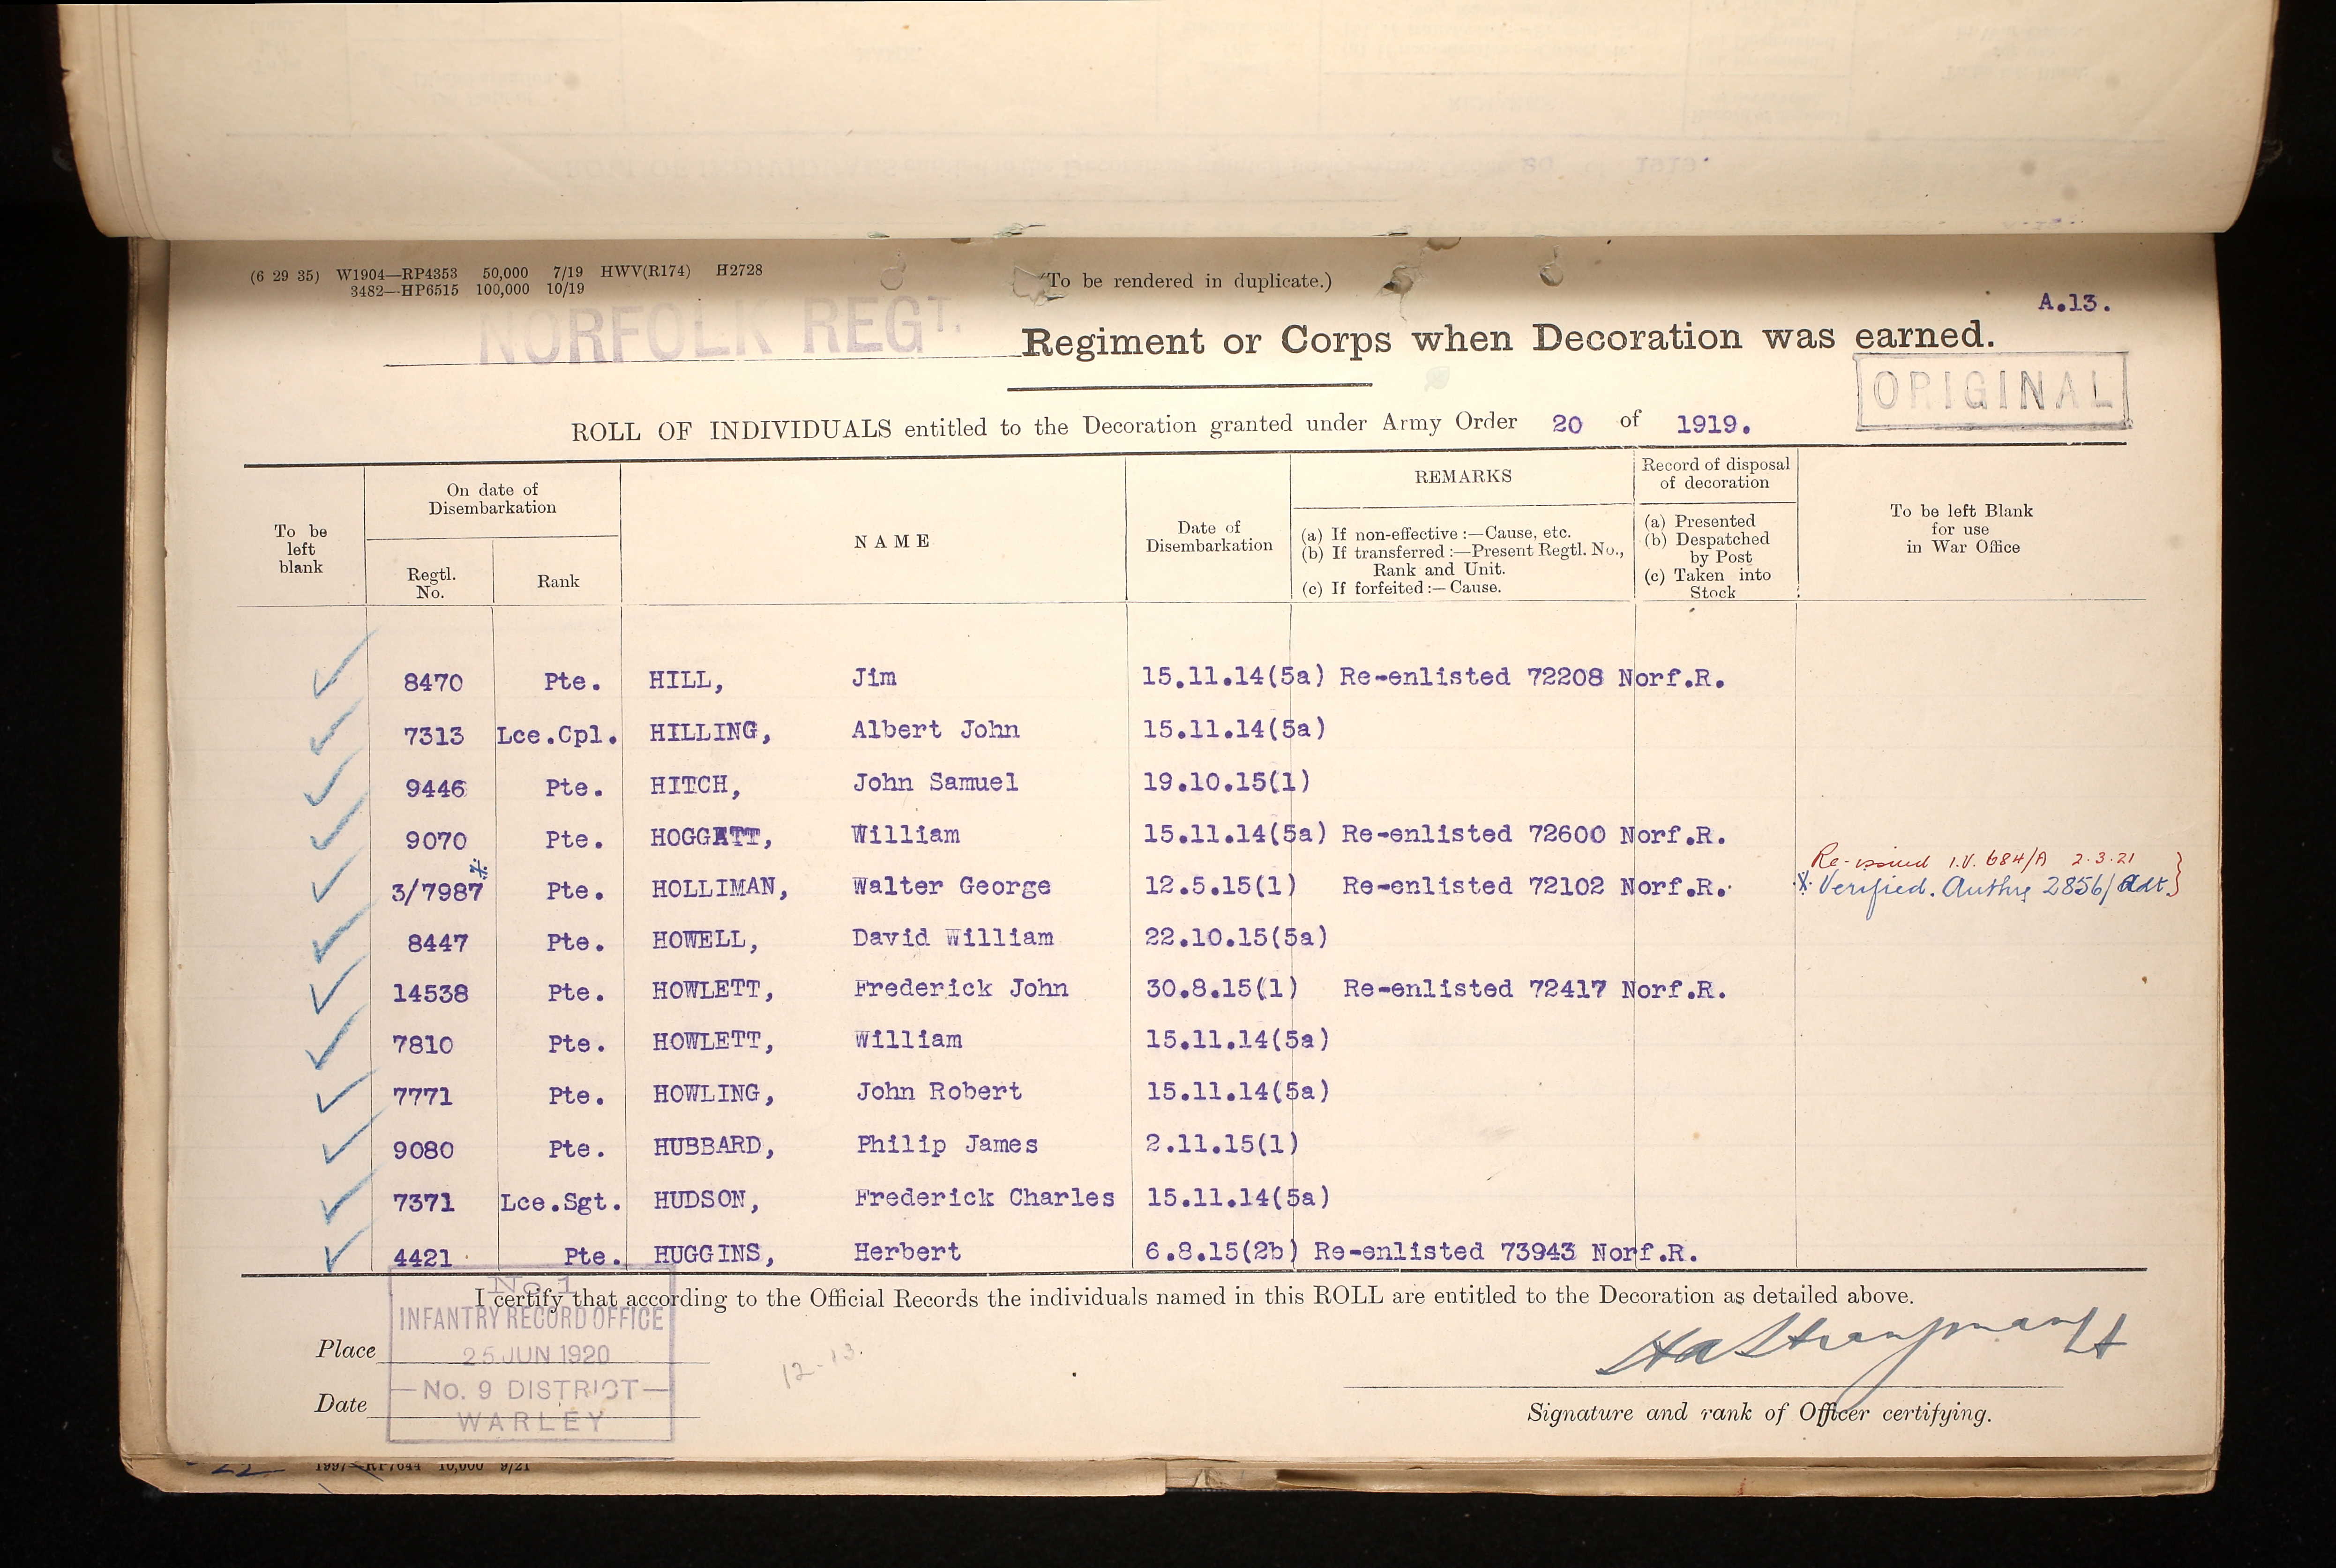 (6 29 35) W1904—RP4353 50,000 7/19 HWV(R174) H2728
3482—HP6515 100,000 10/19
(To be rendered in duplicate.)
A.13.
NORFOLK REGT. Regiment or Corps when Decoration was earned.
ORIGINAL
ROLL OF INDIVIDUALS entitled to the Decoration granted under Army Order 20 of 1919.
To be left blank
On date of Disembarkation
Regtl. No.
Rank
NAME
Date of Disembarkation
REMARKS
(a) If non-effective :—Cause, etc.
(b) If transferred :—Present Regtl. No., Rank and Unit.
(c) If forfeited :— Cause.
Record of disposal of decoration
(a) Presented
(b) Despatched by Post
(c) Taken into Stock
To be left Blank for use in War Office
8470 Pte. HILL, Jim 15.11.14(5a) Re-enlisted 72208 Norf.R.
7313 Lce.Cpl. HILLING, Albert John 15.11.14(5a)
9446 Pte. HITCH, John Samuel 19.10.15(1)
9070 Pte. HOGGATT, William 15.11.14(5a) Re-enlisted 72600 Norf.R.
Re-issued I.V. 684/A 2.3.21
3/7987 Pte. HOLLIMAN, Walter George 12.5.15(1) Re-enlisted 72102 Norf.R. Verified. 2856/Adt.
8447 Pte. HOWELL, David William 22.10.15(5a)
14538 Pte. HOWLETT, Frederick John 30.8.15(1) Re-enlisted 72417 Norf.R.
7810 Pte. HOWLETT, William 15.11.14(5a)
7771 Pte. HOWLING, John Robert 15.11.14(5a)
9080 Pte. HUBBARD, Philip James 2.11.15(1)
7371 Lce.Sgt. HUDSON, Frederick Charles 15.11.14(5a)
4421 Pte. HUGGINS, Herbert 6.8.15(2b) Re-enlisted 73943 Norf.R.
I certify that according to the Official Records the individuals named in this ROLL are entitled to the Decoration as detailed above.
No. 1
INFANTRY RECORD OFFICE
Place 25 JUN 1920
12-13.
No. 9 DISTRICT
Date WARLEY
Signature and rank of Officer certifying.
22
10,000 9/21